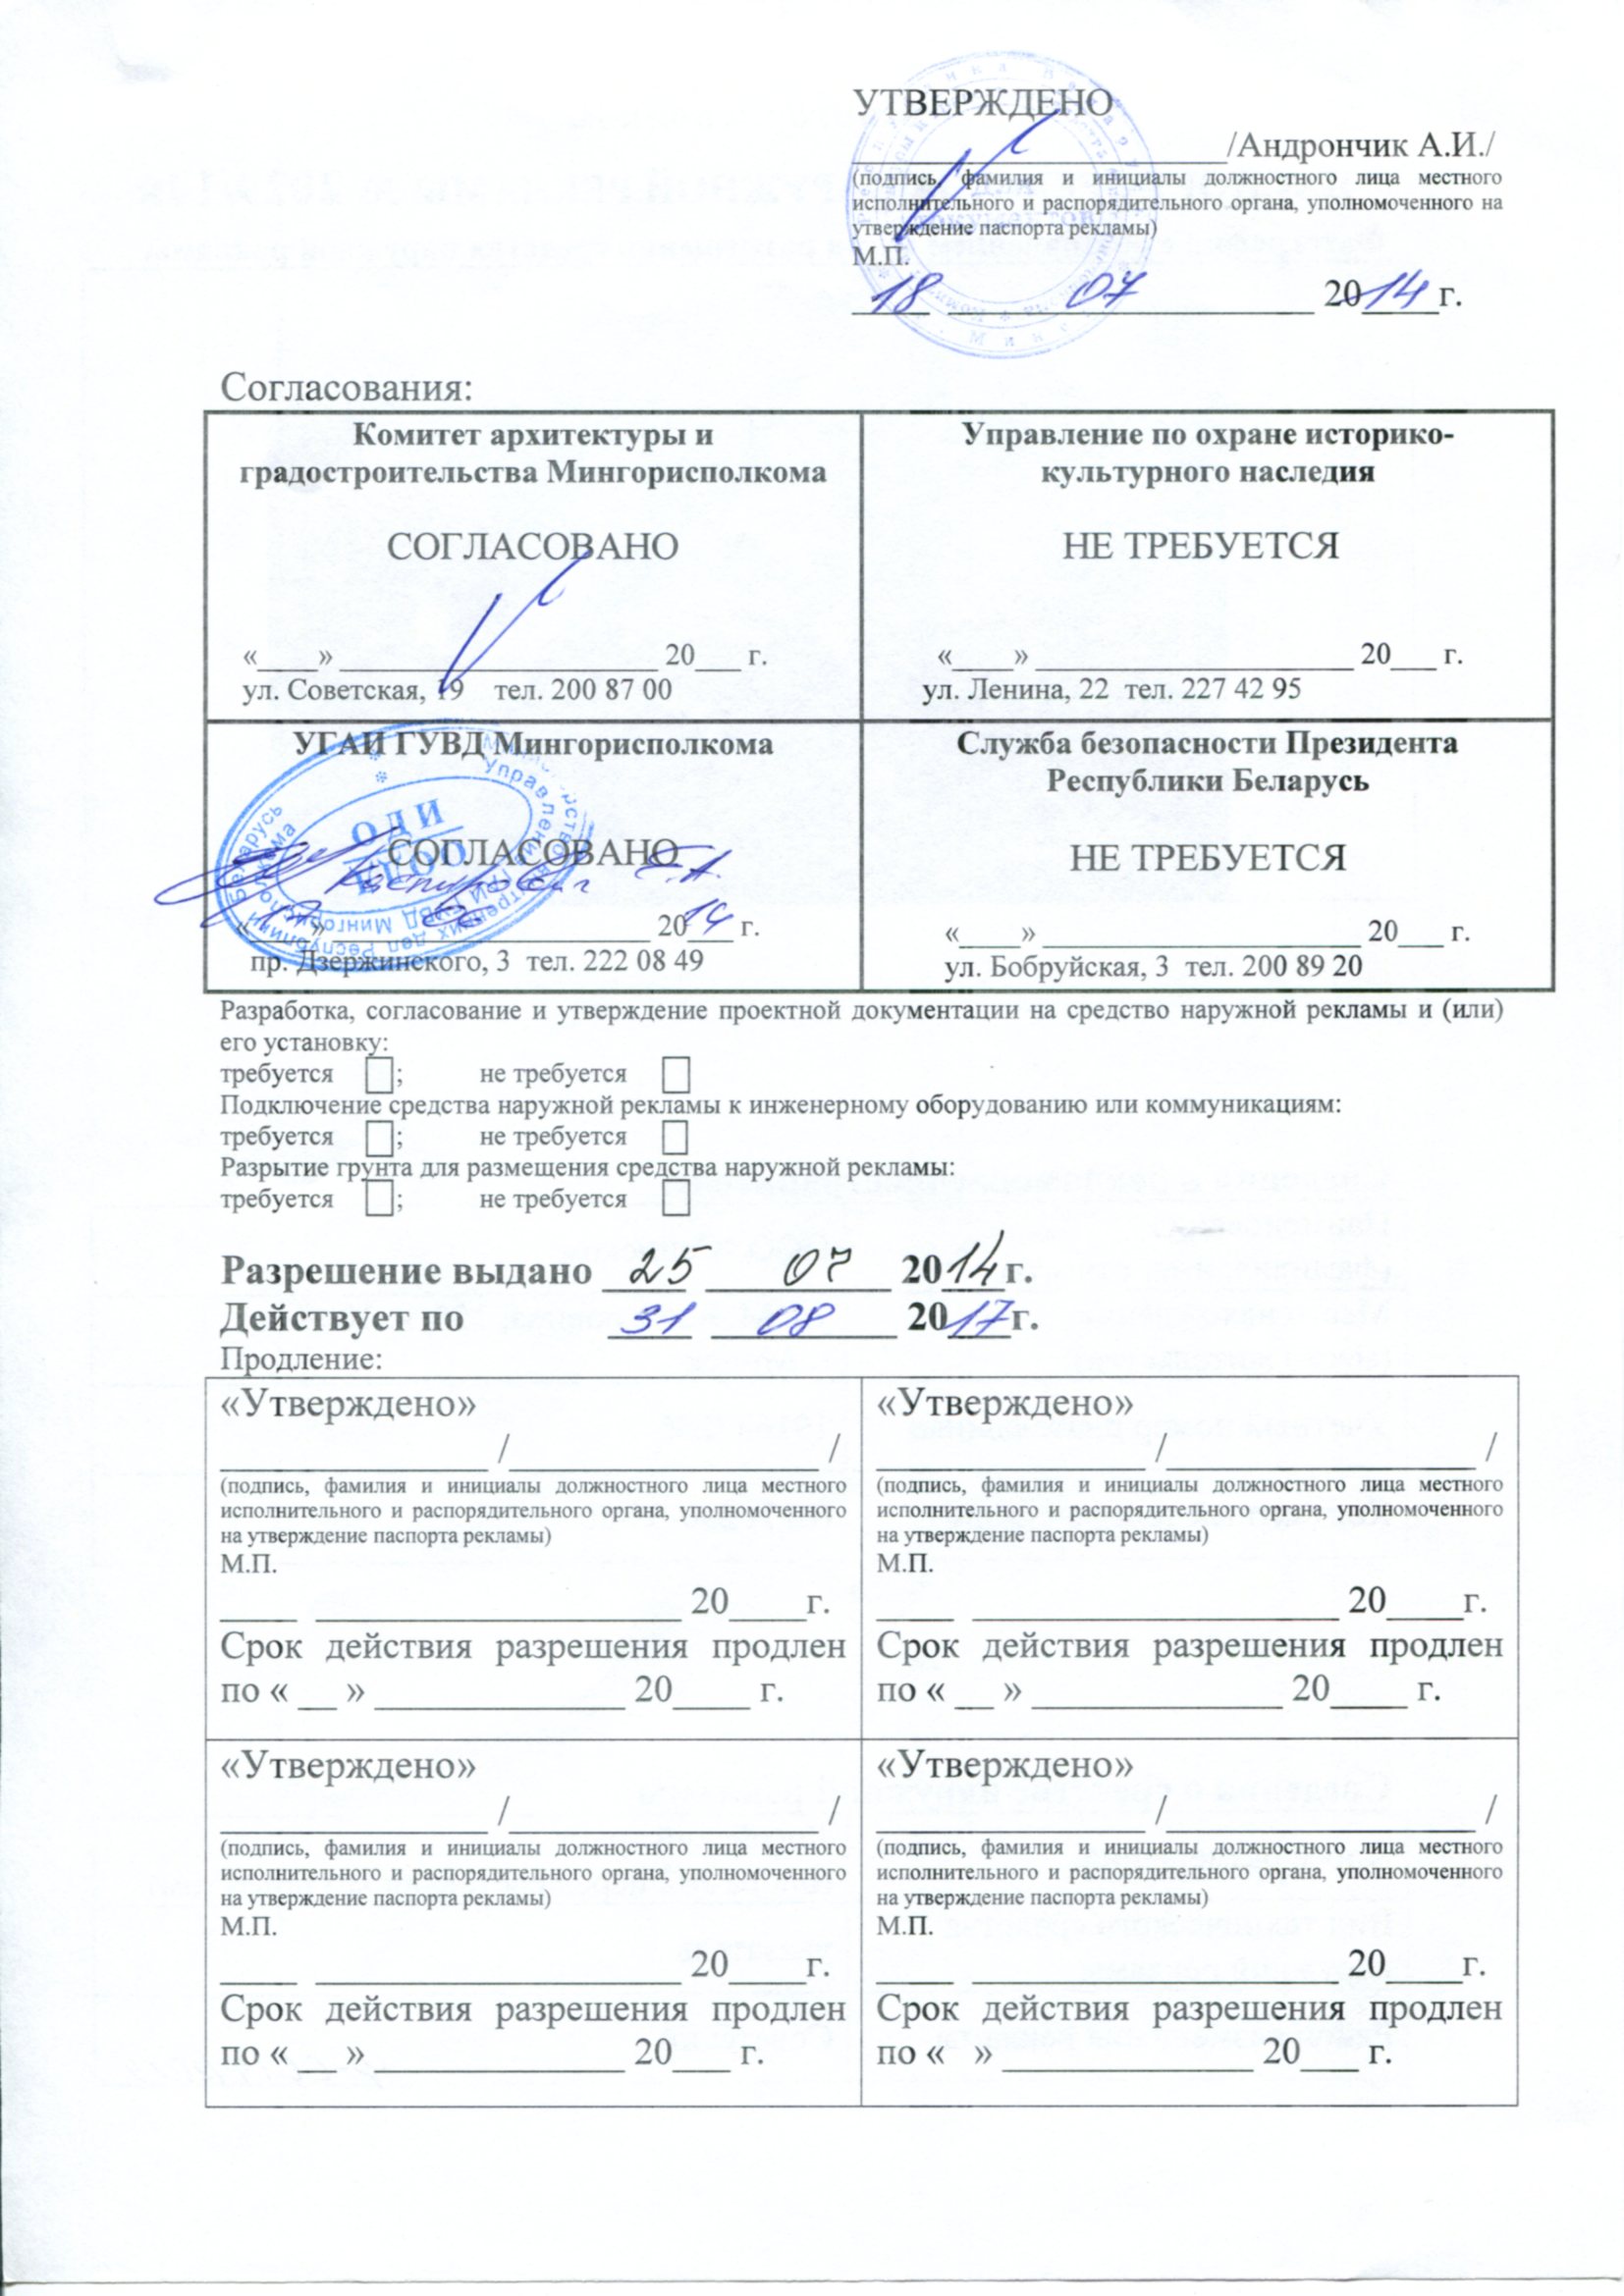 УТВЕРЖДЕНО
____________________/Андрончик А.И./
(подпись, фамилия и инициалы должностного лица местного
исполнительного и распорядительного органа, уполномоченного на
утверждение паспорта рекламы)
М.П.
18 07 2014г.
Согласования:
Комитет архитектуры и
градостроительства Мингорисполкома
СОГЛАСОВАНО
«____» ____________________ 20___ г.
ул. Советская, 19 тел. 200 87 00
Управление по охране историко-
культурного наследия
НЕ ТРЕБУЕТСЯ
«____» ____________________ 20___ г.
ул. Ленина, 22 тел. 227 42 95
УГАИ ГУВД Мингорисполкома
ОДИ
СОГЛАСОВАНО
«17» 2014 г.
пр. Дзержинского, 3 тел. 222 08 49
Служба безопасности Президента
Республики Беларусь
НЕ ТРЕБУЕТСЯ
«____» ____________________ 20___ г.
ул. Бобруйская, 3 тел. 200 89 20
Разработка, согласование и утверждение проектной документации на средство наружной рекламы и (или)
его установку:
требуется ☐; не требуется ☐
Подключение средства наружной рекламы к инженерному оборудованию или коммуникациям:
требуется ☐; не требуется ☐
Разрытие грунта для размещения средства наружной рекламы:
требуется ☐; не требуется ☐
Разрешение выдано 25 07 2014г.
Действует по 31 08 2017г.
Продление:
«Утверждено»
______________ /________________ /
(подпись, фамилия и инициалы должностного лица местного
исполнительного и распорядительного органа, уполномоченного
на утверждение паспорта рекламы)
М.П.
____ ___________________ 20____г.
Срок действия разрешения продлен
по « __ » _____________ 20____ г.
«Утверждено»
______________ /________________ /
(подпись, фамилия и инициалы должностного лица местного
исполнительного и распорядительного органа, уполномоченного
на утверждение паспорта рекламы)
М.П.
____ ___________________ 20____г.
Срок действия разрешения продлен
по « __ » _____________ 20____ г.
«Утверждено»
______________ /________________ /
(подпись, фамилия и инициалы должностного лица местного
исполнительного и распорядительного органа, уполномоченного
на утверждение паспорта рекламы)
М.П.
____ ___________________ 20____г.
Срок действия разрешения продлен
по « __ » _____________ 20___ г.
«Утверждено»
______________ /________________ /
(подпись, фамилия и инициалы должностного лица местного
исполнительного и распорядительного органа, уполномоченного
на утверждение паспорта рекламы)
М.П.
____ ___________________ 20____г.
Срок действия разрешения продлен
по « » _____________ 20___ г.